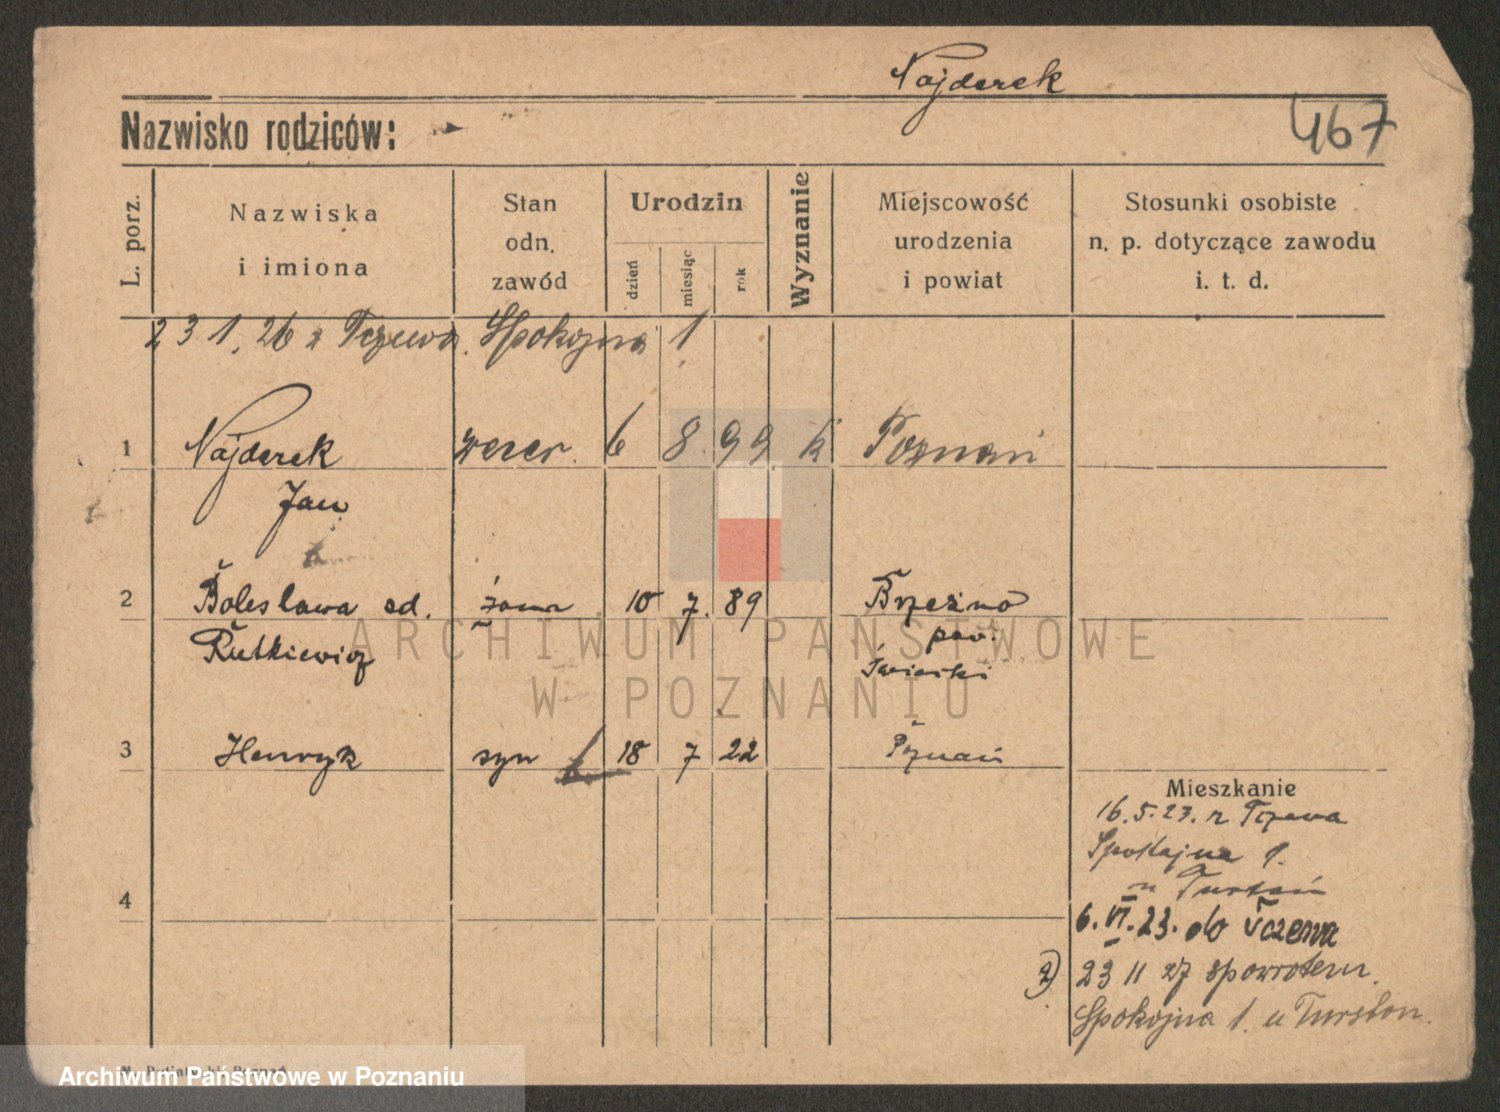 Najderek
467
Nazwisko rodziców:
L. porz.
Nazwiska
i imiona
Stan
odn.
zawód
Urodzin
dzień
miesiąc
rok
Wyznanie
Miejscowość
urodzenia
i powiat
Stosunki osobiste
n. p. dotyczące zawodu
i. t. d.
23 1. 26 z Tczewa. Spokojna 1
1 Najderek 6 8. 99 k Poznań
Jan
2 Bolesława od. żona 10 7. 89 Brzeźno
Rutkiewicz pow.
3 Henryk syn 18 7 22 Poznań
Mieszkanie
16.5.23. z Tczewa
Spokojna 1.
4
6. VI. 23. do Tczewa
2) 23 11 27 spowrotem.
Spokojna 1. u
ARCHIWUM PAŃSTWOWE
W POZNANIU
Archiwum Państwowe w Poznaniu